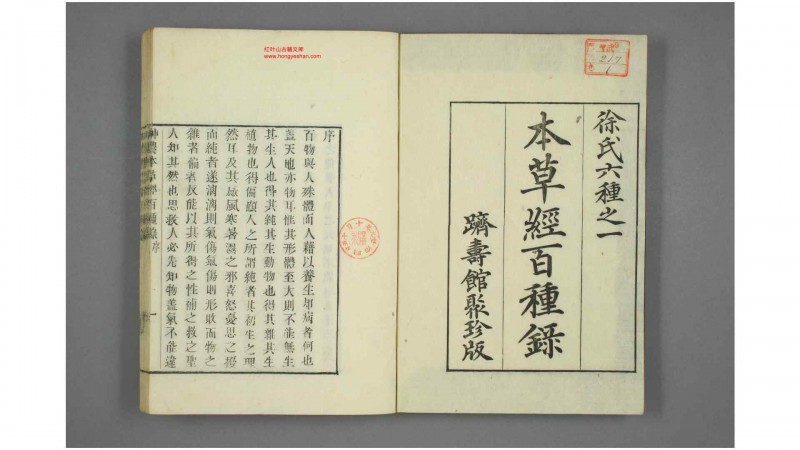 徐氏六種之一
本草經百種錄
躋壽館聚珍版
217
1
红叶山古籍文库
www.hongyeshan.com
序
百物與人殊體而人藉以養生却病者何也
蓋天地亦物耳惟其形體至大則不能無生
其生人也得其純其生動物也得其雜其生
植物也得其偏顧人之所謂純者其初生之理
然耳及其感風寒暑濕之邪喜怒憂思之擾
而純者遂漓漓則氣傷氣傷則形敗而物之
雜者偏者反能以其所得之性補之救之聖
人知其然也思救人必先知物蓋氣不能違
神農本草經百種錄序
一